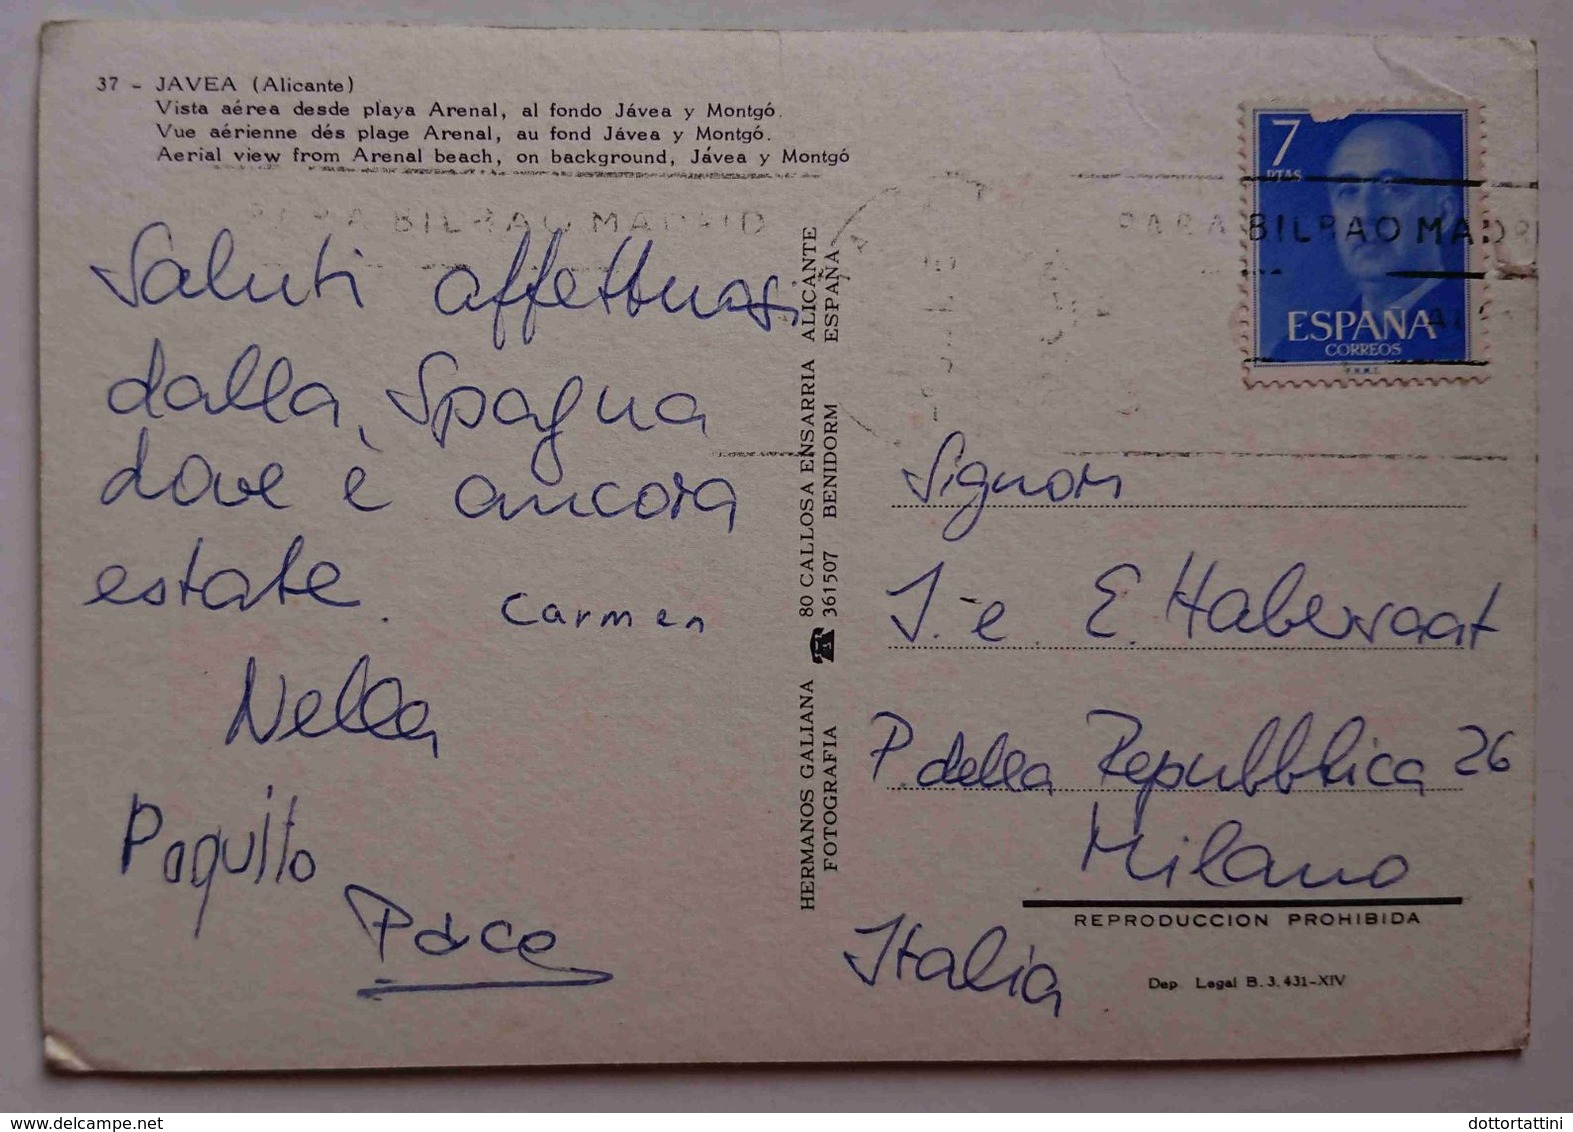 37 - JAVEA (Alicante)
Vista aérea desde playa Arenal, al fondo Jávea y Montgó.
Vue aérienne dés plage Arenal, au fond Jávea y Montgó.
Aerial view from Arenal beach, on background, Jávea y Montgó
PARA BILBAO MADRID
Saluti affettuosi
dalla Spagna
dove è ancora
estate.
Carmen
Nella
Paquito
Paco
HERMANOS GALIANA ☎ 80 CALLOSA ENSARRIA ALICANTE
FOTOGRAFIA 361507 BENIDORM ESPAÑA
7
PTAS
PARA BILBAO MADRI
ESPAÑA
CORREOS
F.N.M.T.
Signori
J. e E. Habersaat
P. della Repubblica 26
Milano
REPRODUCCION PROHIBIDA
Italia
Dep. Legal B. 3.431-XIV
dottortattini
www.delcampe.net